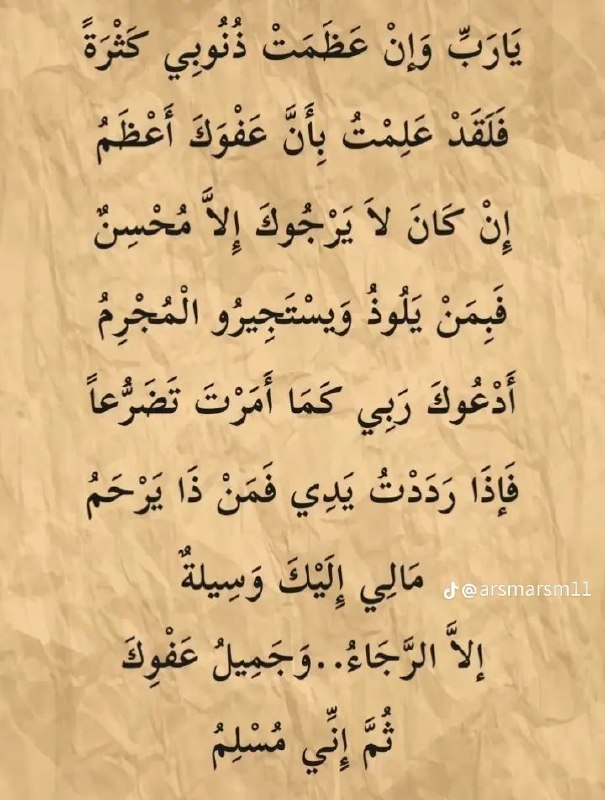 يَارَبِّ وَإنْ عَظَمَتْ ذُنُوبِي كَثْرَةً
فَلَقَدْ عَلِمْتُ بِأَنَّ عَفْوَكَ أَعْظَمُ
إِنْ كَانَ لاَ يَرْجُوكَ إِلاَّ مُحْسِنٌ
فَبِمَنْ يَلُوذُ وَيسْتَجِيرُو الْمُجْرِمُ
أَدْعُوكَ رَبِي كَمَا أَمَرْتَ تَضَرُّعاً
فَإذَا رَدَدْتُ يَدِي فَمَنْ ذَا يَرْحَمُ
مَالِي إِلَيْكَ وَسِيلةٌ
@arsmarsm11
إلاَّ الرَّجَاءُ..وَجَمِيلُ عَفْوِكَ
ثُمَّ إِنِّي مُسْلِمُ